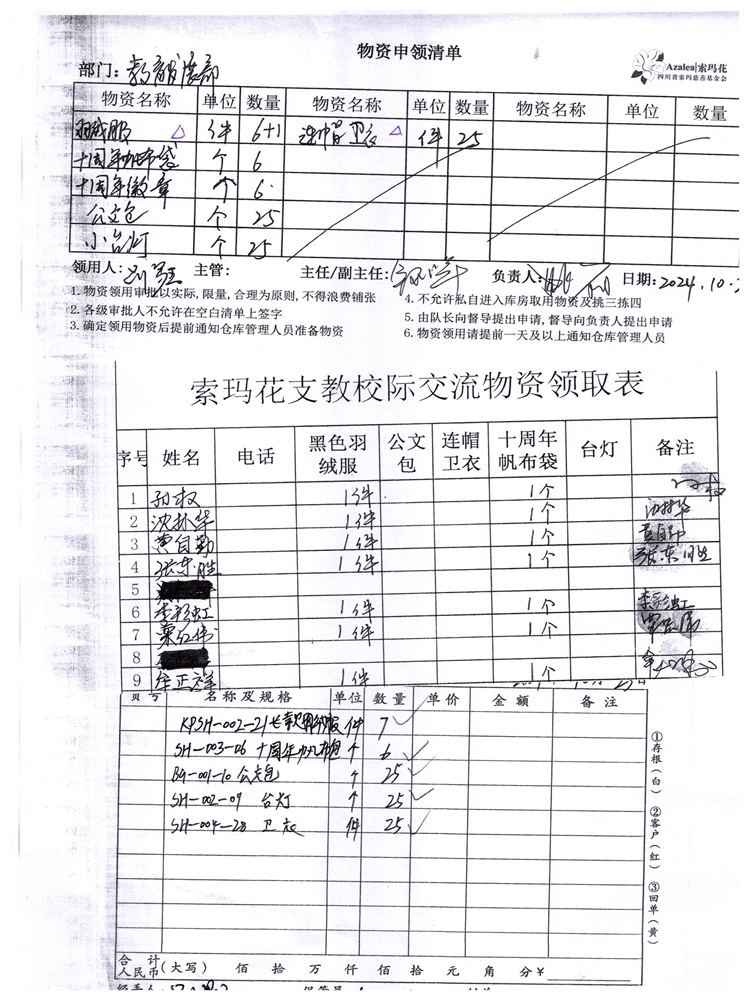 物资申领清单
Azalea|索玛花
四川省索玛慈善基金会
部门：教育发展部
物资名称 单位 数量 物资名称 单位 数量 物资名称 单位 数量
羽绒服 件 6+1 连帽卫衣 件 25
十周年帆布袋 个 6
十周年徽章 个 6
公文包 个 25
小台灯 个 25
领用人： 主管： 主任/副主任： 负责人： 日期：2024.10.
1.物资领用审批以实际,限量,合理为原则,不得浪费铺张
2.各级审批人不允许在空白清单上签字
3.确定领用物资后提前通知仓库管理人员准备物资
4.不允许私自进入库房取用物资及挑三拣四
5.由队长向督导提出申请,督导向负责人提出申请
6.物资领用请提前一天及以上通知仓库管理人员
索玛花支教校际交流物资领取表
序号 姓名 电话 黑色羽绒服 公文包 连帽卫衣 十周年帆布袋 台灯 备注
1 孙权 1件 1个
2 沈林华 1件 1个 沈林华
3 黄自勤 1件 1个 黄自勤
4 张东胜 1件 1个 张东胜
5
6 李彩虹 1件 1个 李彩虹
7 1件 1个
8
9 1件 1个
货号 名称及规格 单位 数量 单价 金额 备注
件 7
SH-003-06 十周年帆布包 个 6
BG-001-10 公文包 个 25
SH-002-09 台灯 个 25
SH-004-28 卫衣 件 25
①存根(白) ②客户(红) ③回单(黄)
合计人民币(大写) 佰 拾 万 仟 佰 拾 元 角 分 ¥